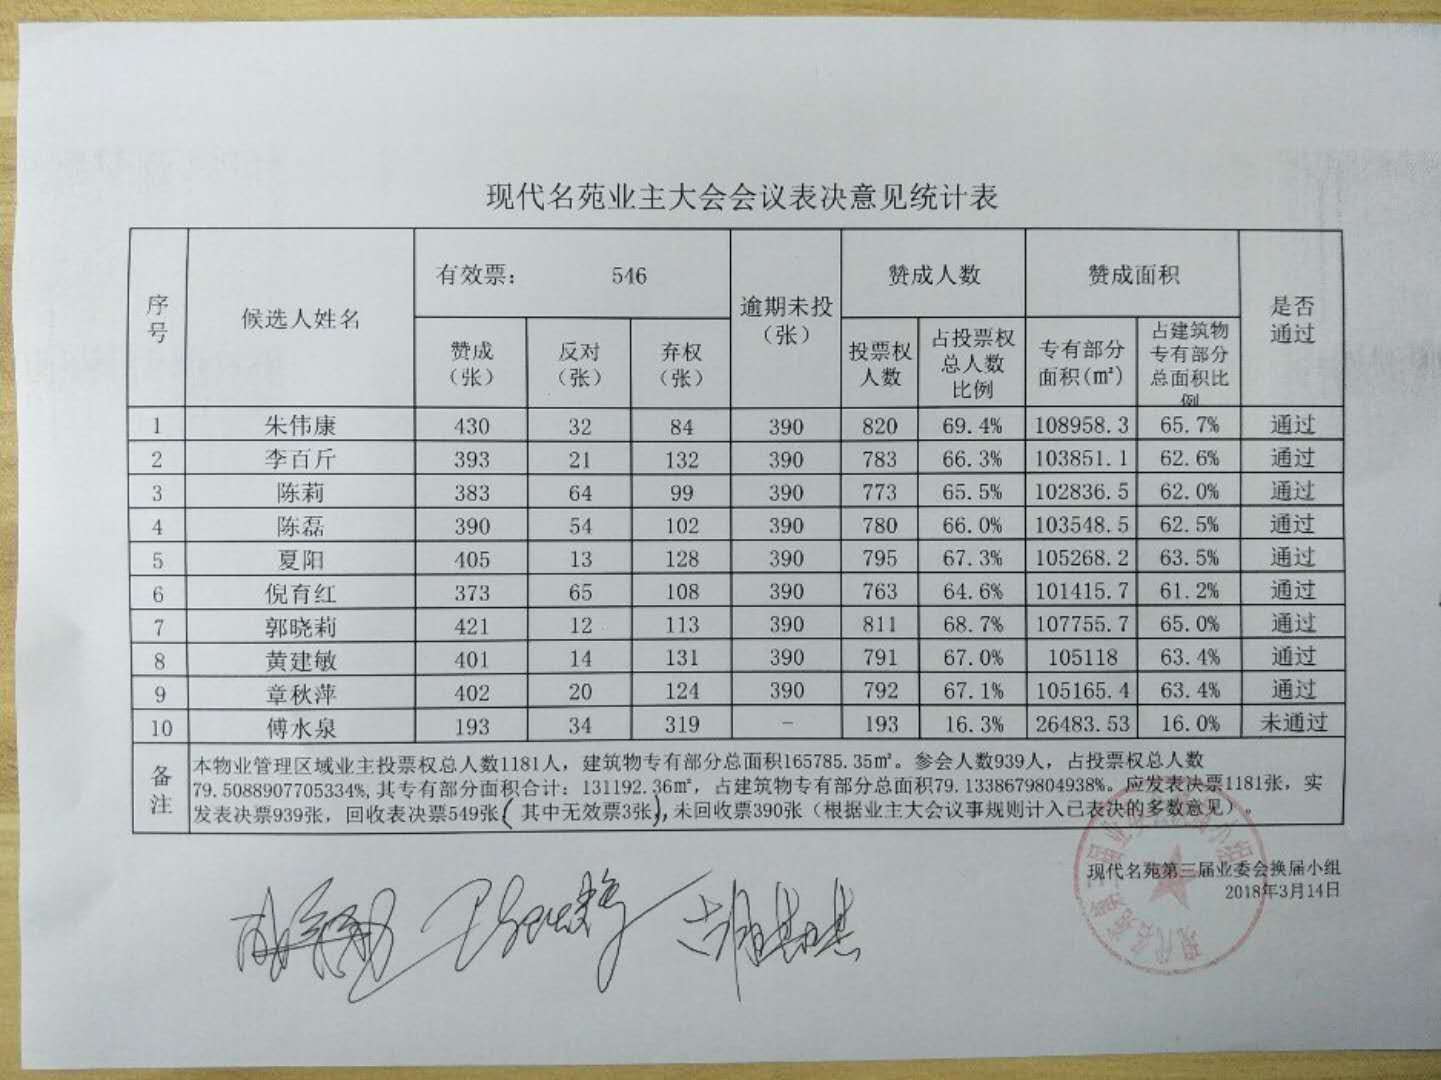 现代名苑业主大会会议表决意见统计表
序号 候选人姓名 有效票: 546 逾期未投(张) 赞成人数 赞成面积 是否通过
赞成(张) 反对(张) 弃权(张) 投票权人数 占投票权总人数比例 专有部分面积(㎡) 占建筑物专有部分总面积比例
1 朱伟康 430 32 84 390 820 69.4% 108958.3 65.7% 通过
2 李百斤 393 21 132 390 783 66.3% 103851.1 62.6% 通过
3 陈莉 383 64 99 390 773 65.5% 102836.5 62.0% 通过
4 陈磊 390 54 102 390 780 66.0% 103548.5 62.5% 通过
5 夏阳 405 13 128 390 795 67.3% 105268.2 63.5% 通过
6 倪育红 373 65 108 390 763 64.6% 101415.7 61.2% 通过
7 郭晓莉 421 12 113 390 811 68.7% 107755.7 65.0% 通过
8 黄建敏 401 14 131 390 791 67.0% 105118 63.4% 通过
9 章秋萍 402 20 124 390 792 67.1% 105165.4 63.4% 通过
10 傅水泉 193 34 319 - 193 16.3% 26483.53 16.0% 未通过
备注 本物业管理区域业主投票权总人数1181人，建筑物专有部分总面积165785.35㎡。参会人数939人，占投票权总人数
79.5088907705334%,其专有部分面积合计：131192.36㎡，占建筑物专有部分总面积79.1338679804938%。应发表决票1181张，实
发表决票939张，回收表决票549张(其中无效票3张),未回收票390张（根据业主大会议事规则计入已表决的多数意见）。
现代名苑第三届业委会换届小组
2018年3月14日